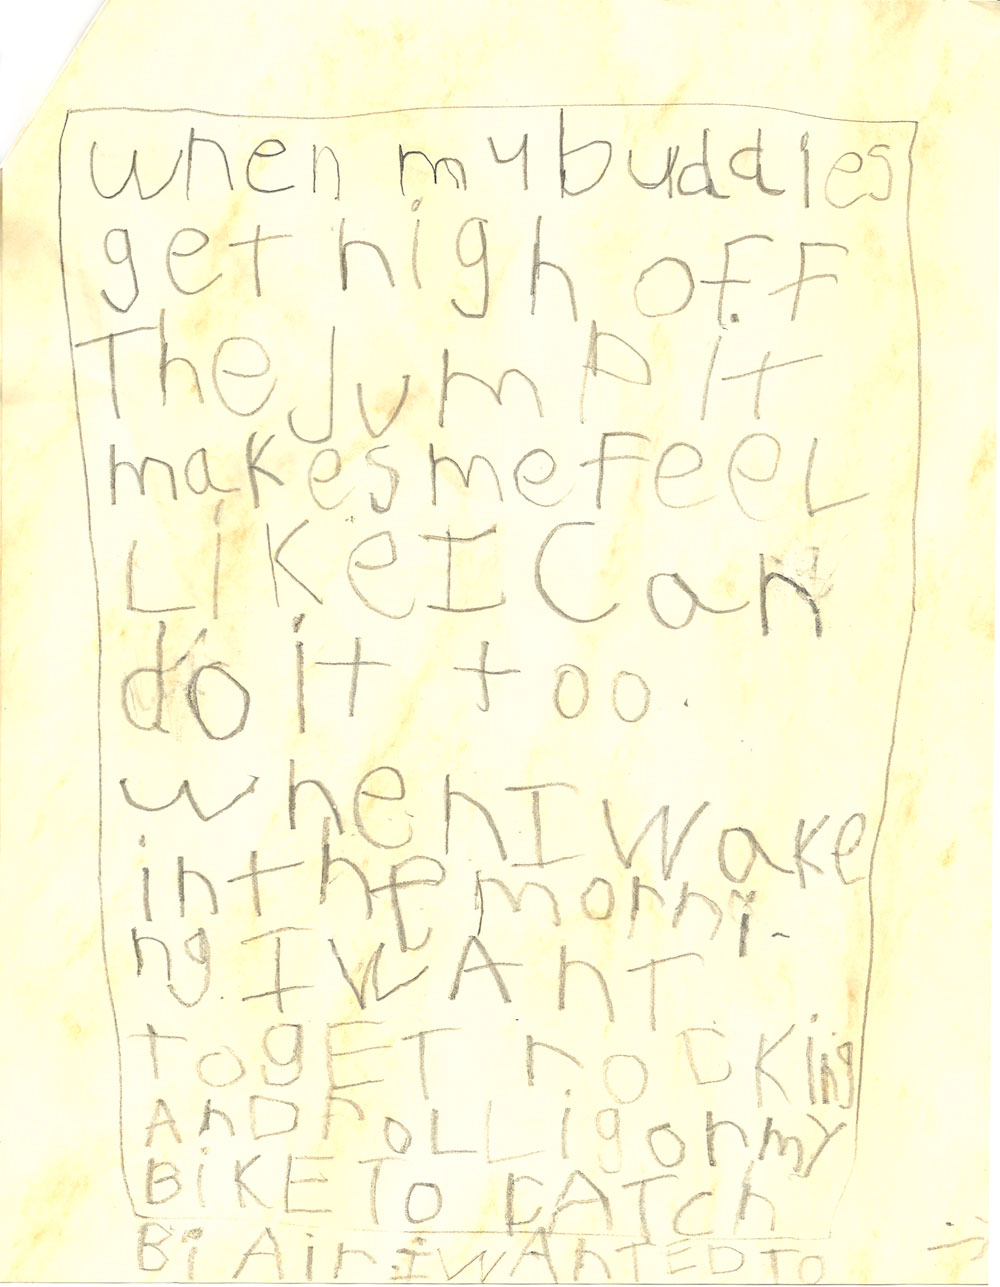 when my buddies
get high off
The Jump it
makes me FeeL
Like I Can
do it too.
when I wake
in the morni-
ng I wAnT
TogET rocKing
AnD roLLig on my
BiKE To CATch
Bi Air i wAnTED To